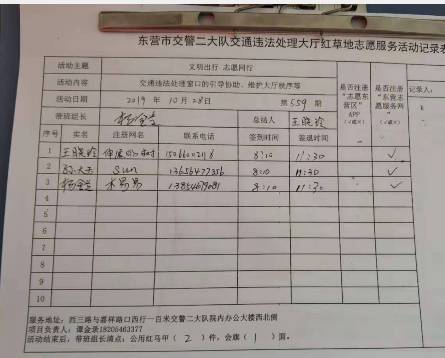 东营市交警二大队交通违法处理大厅红草地志愿服务活动记录表
活动主题 文明出行 志愿同行
活动内容 交通违法处理窗口的引导协助、维护大厅秩序等
活动日期 2019 年 10 月 28日 第 559 期
带班组长 总结人 王晓玲
是否注册“志愿东营区”APP（√或×）
是否注册“东营志愿服务网”（√或×）
记录人：
序号 实名 注册网名 联系电话 签到时间 签退时间
1 王晓玲 8:10 11:30 √
2 sun 13656477356 8:10 11:30 √
3 木易易 13854679081 8:10 11:30 √
4
5
6
7
8
9
10
服务地址：西三路与嘉祥路口西行一百米交警二大队院内办公大楼西北侧
项目负责人：谭金录18205463377
活动结束后，带班组长清点：公用红马甲（ 2 ）件，会旗（ 1 ）面。